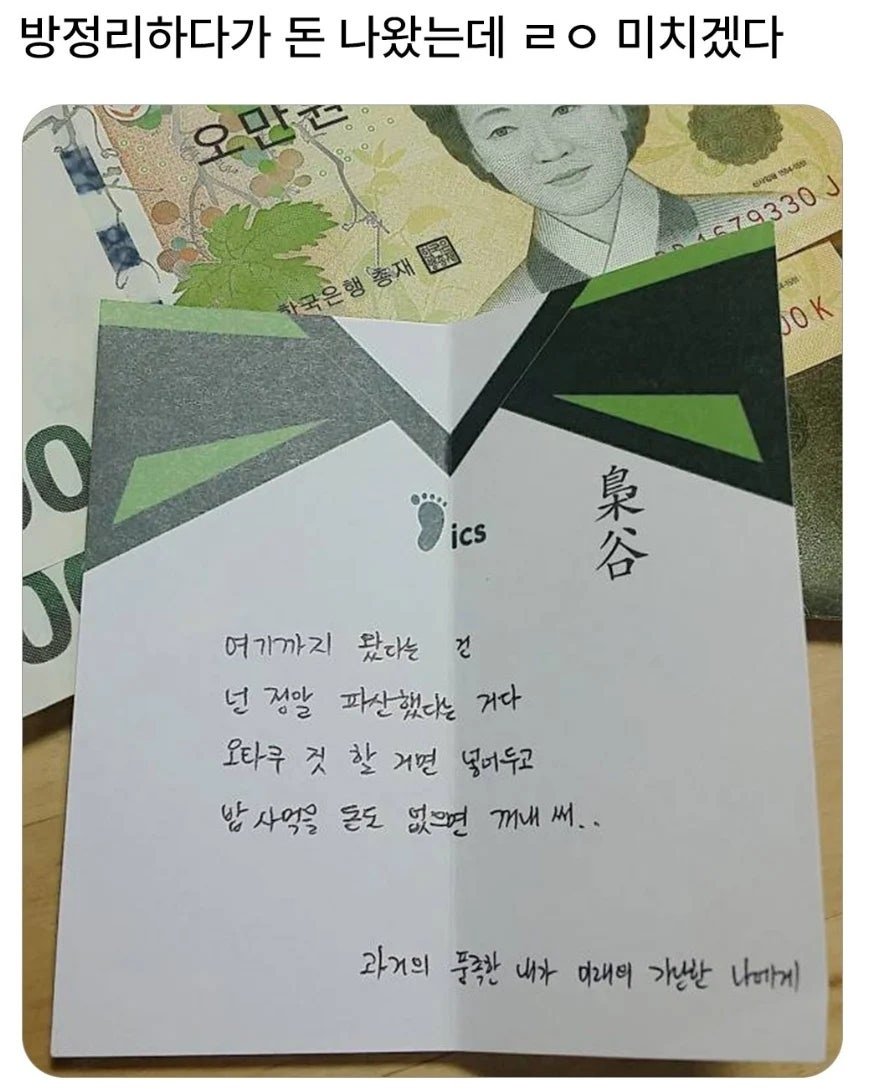 방정리하다가 돈 나왔는데 ㄹㅇ 미치겠다
오만원
한국은행 총재
신사임당 1504-1551
4679330 J
00 K
00
00
ics
梟
谷
여기까지 왔다는 건
넌 정말 파산했다는 거다
오타쿠 짓 할 거면 넣어두고
밥 사먹을 돈도 없으면 꺼내 써..
과거의 풍족한 내가 미래의 가난한 나에게